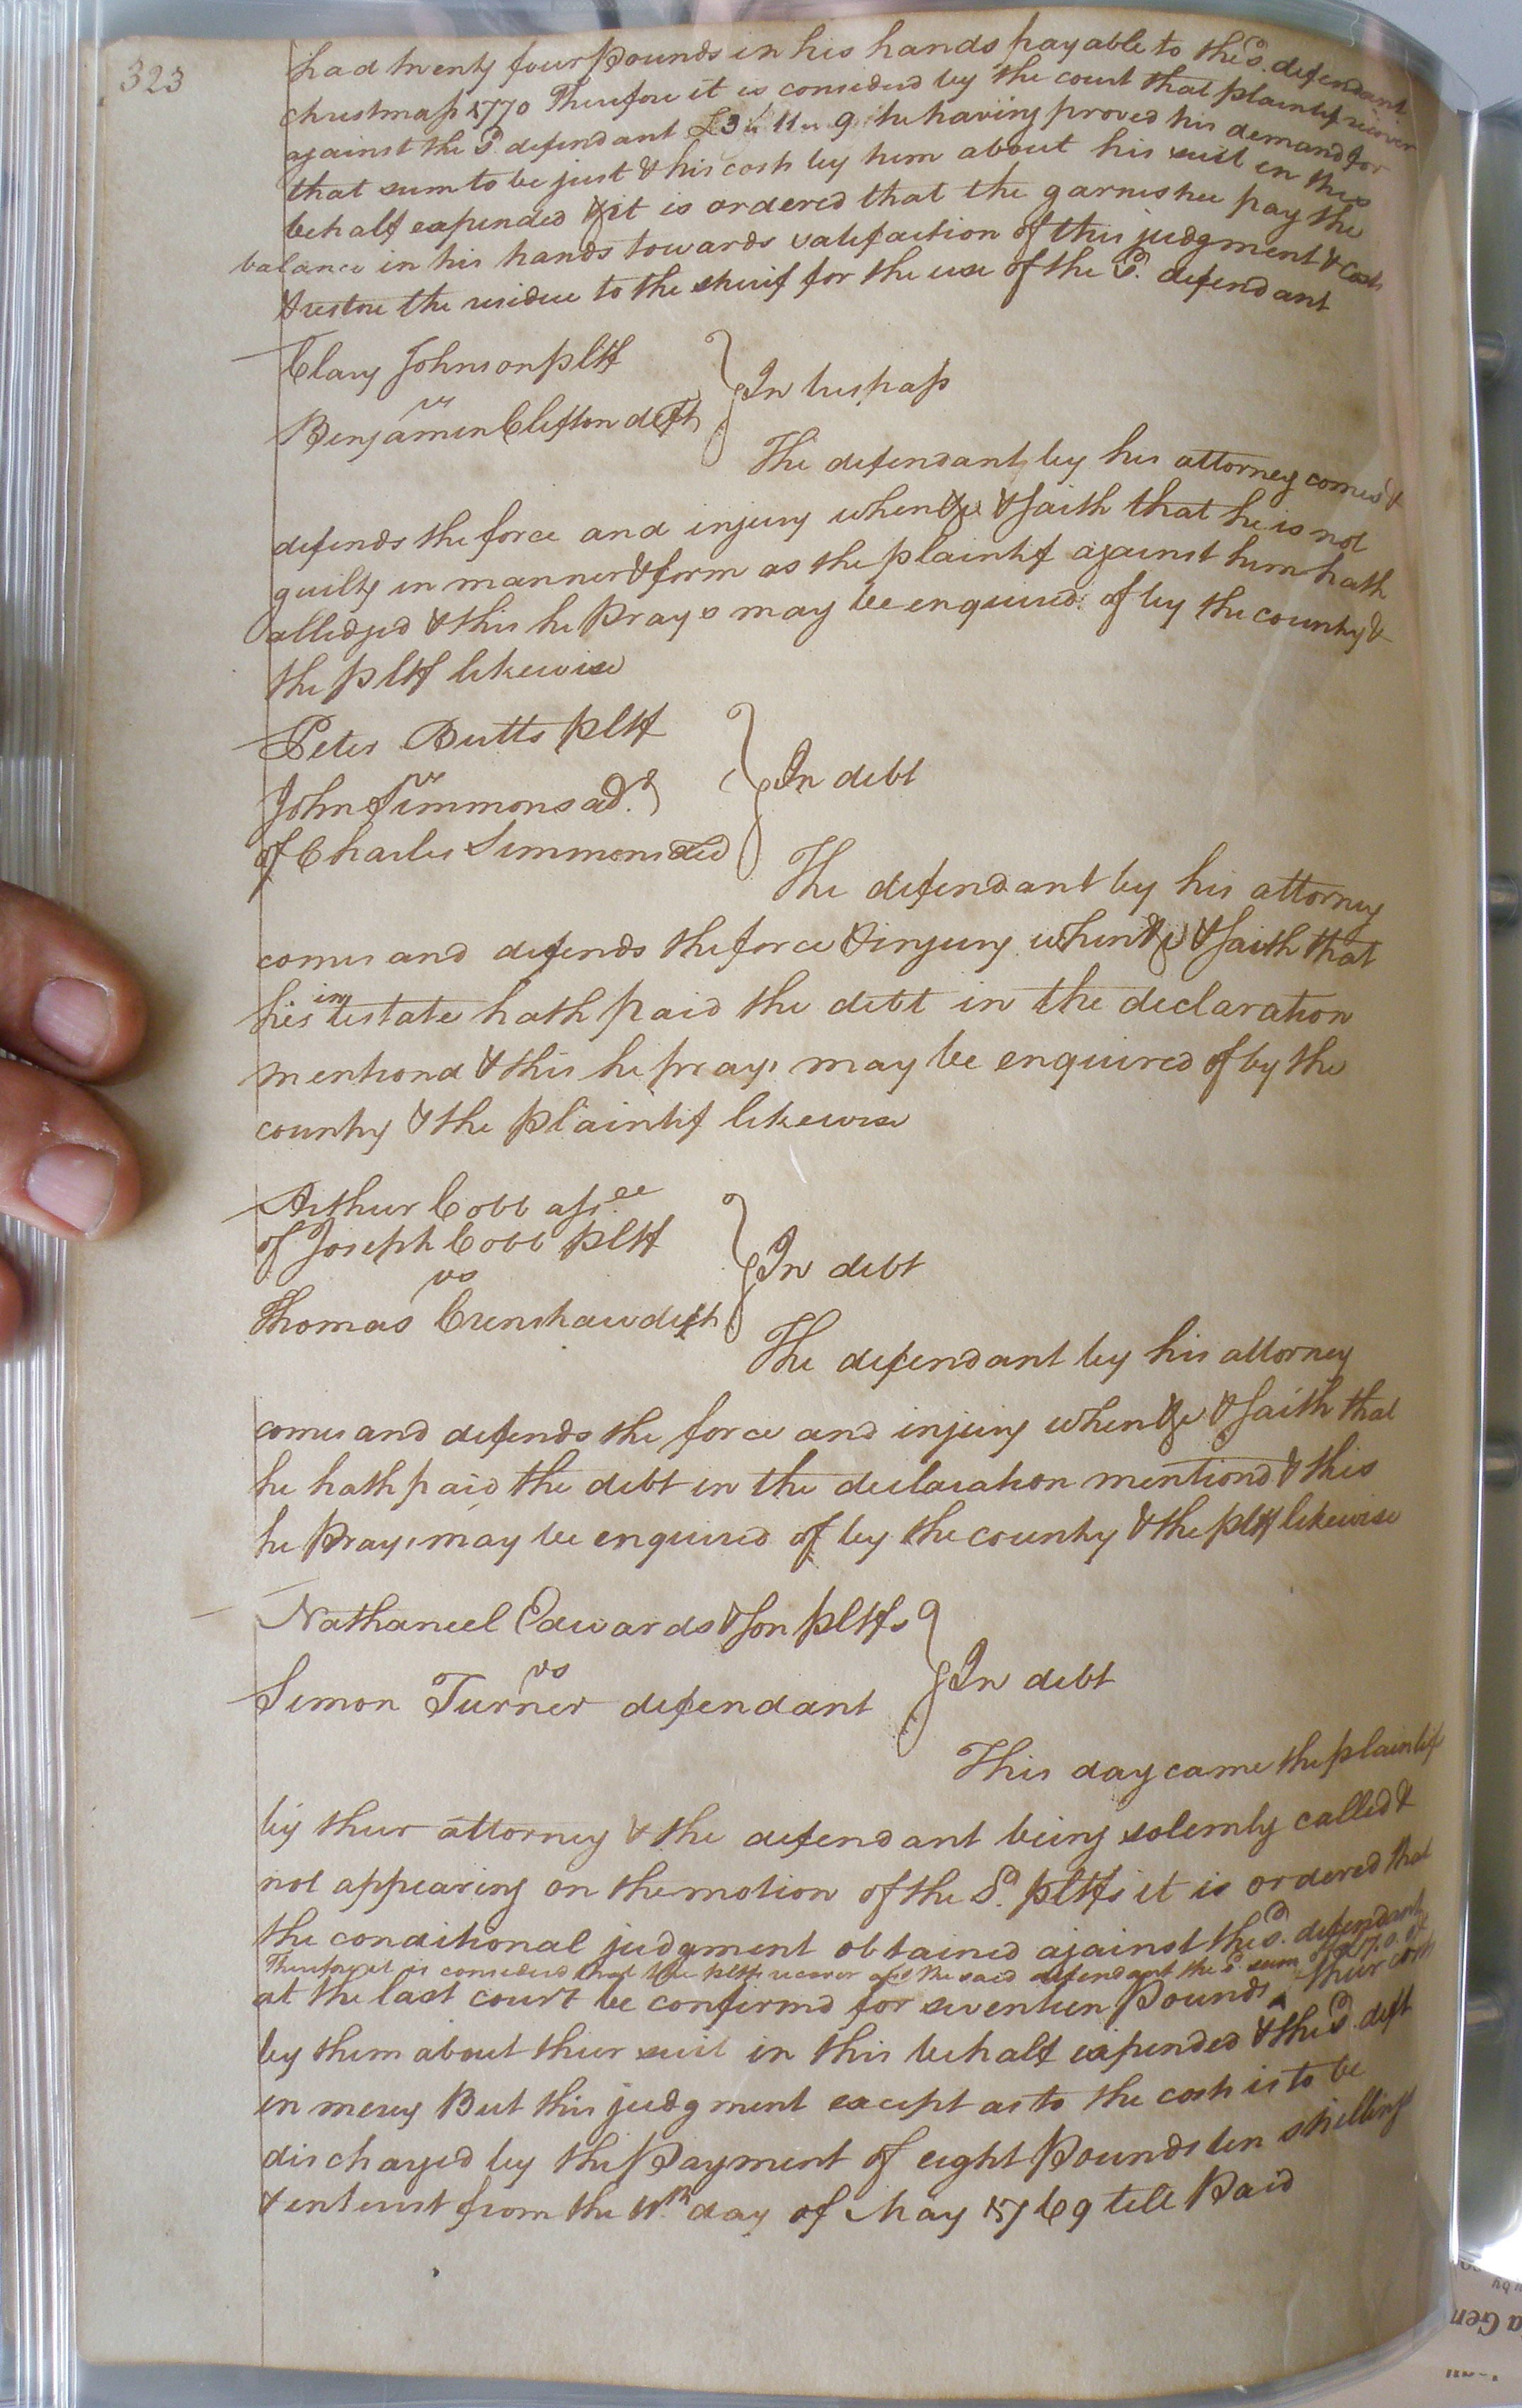 323
had twenty four Pounds in his hands payable to the sd. defendant
christmass 1770 Therefore it is considered by the court that plaintif recover
against the sd. defendant £3 " 11 " 9 he having proved his demand for
that sum to be just & his costs by him about his suit in this
behalf expended & it is ordered that the garnishee pay the
balance in his hands towards satisfaction of this judgment & costs
& restore the residue to the sherif for the use of the sd. defendant
Clary Johnson pltf
vs
Benjamin Clifton deft
In trespass
The defendant by his attorney comes &
defends the force and injury when &c & saith that he is not
guilty in manner & form as the plaintif against him hath
alledged & this he prays may be enquired of by the county &
the pltf likewise
Peter Butts pltf
vs
John Simmons adr.
of Charles Simmons decd
In debt
The defendant by his attorney
comes and defends the force & injury when &c & saith that
his intestate hath paid the debt in the declaration
mentiond & this he prays may be enquired of by the
county & the plaintif likewise
Arthur Cobb assee
of Joseph Cobb pltf
vs
Thomas Crenshaw deft
In debt
The defendant by his attorney
comes and defends the force and injury when &c & saith that
he hath paid the debt in the declaration mentiond & this
he prays may be enquired of by the county & the pltf likewise
Nathaneel Edwards & Son pltfs
vs
Simon Turner defendant
In debt
This day came the plaintif
by their attorney & the defendant being solemly called &
not appearing on the motion of the Sd. pltfs it is ordered that
the conditional judgment obtained against the sd. defendant
Therefore it is considered that the pltfs recover agst the said defendant the sd sum of £17.0.0 &
at the last court be confirmd for seventeen Pounds ^ their costs
by them about their suit in this behalf expended & the sd. deft
in mercy But this judgment except as to the costs is to be
discharged by the Payment of eight Pounds ten shillings
& interest from the 11th day of May 1769 till Paid